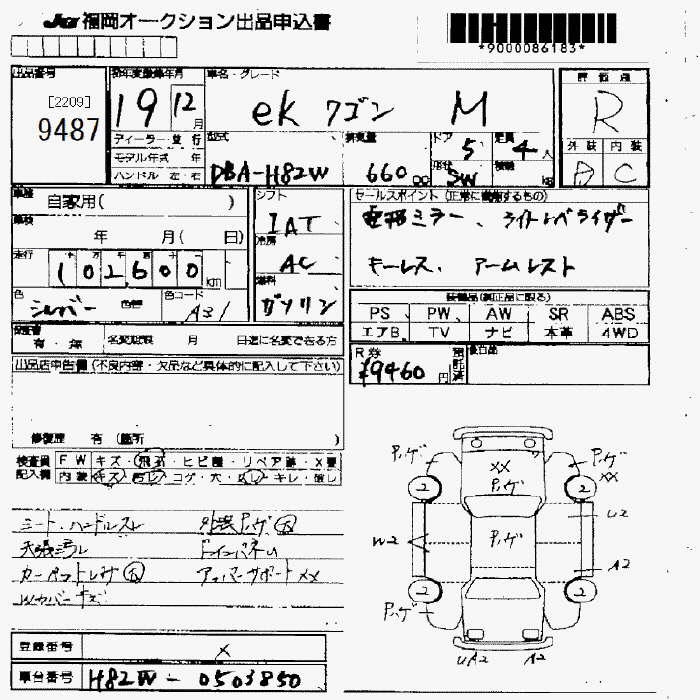 JU 福岡オークション出品申込書
*9000086183*
出品番号
[2209]
9487
初年度登録年月
19 12月
車名・グレード
ek ワゴン M
評価点
R
外装 内装
D C
ディーラー 並行
モデル年式 年
ハンドル 左・右
型式
DBA-H82W
排気量
660 cc
ドア
5
形状
SW
定員
4人
積載
kg
車歴
自家用( )
車検
年 月( 日)
走行
102,600 km
色
シルバー
色替
色コード
A31
シフト
IAT
冷房
AC
燃料
ガソリン
セールスポイント (正常に機能するもの)
電格ミラー、ライトレベライザー
キーレス、アームレスト
装備品(純正品に限る)
PS PW AW SR ABS
エアB TV ナビ 本革 4WD
保証書
有・無
名変期限 月 日迄に名変できる方
R券
¥9460 円
預託済
後日品
出品店申告欄 (不良内容・欠品など具体的に記入して下さい)
修復歴 有 (箇所 )
検査員記入欄
FW キズ・飛石・ヒビ・リペア跡・X要
内装 キズ・コゲ・穴・キレ・
シート・ハンドルスレ
天張ヨゴレ
カーペット
Wカバーキズ
アッパーサポートXX
P.ゲ
XX
P.ゲ
P.ゲ
XX
2
2
U2
W2
P.ゲ
A2
2
2
P.ゲ
UA2
A2
登録番号
X
車台番号
H82W-0503850